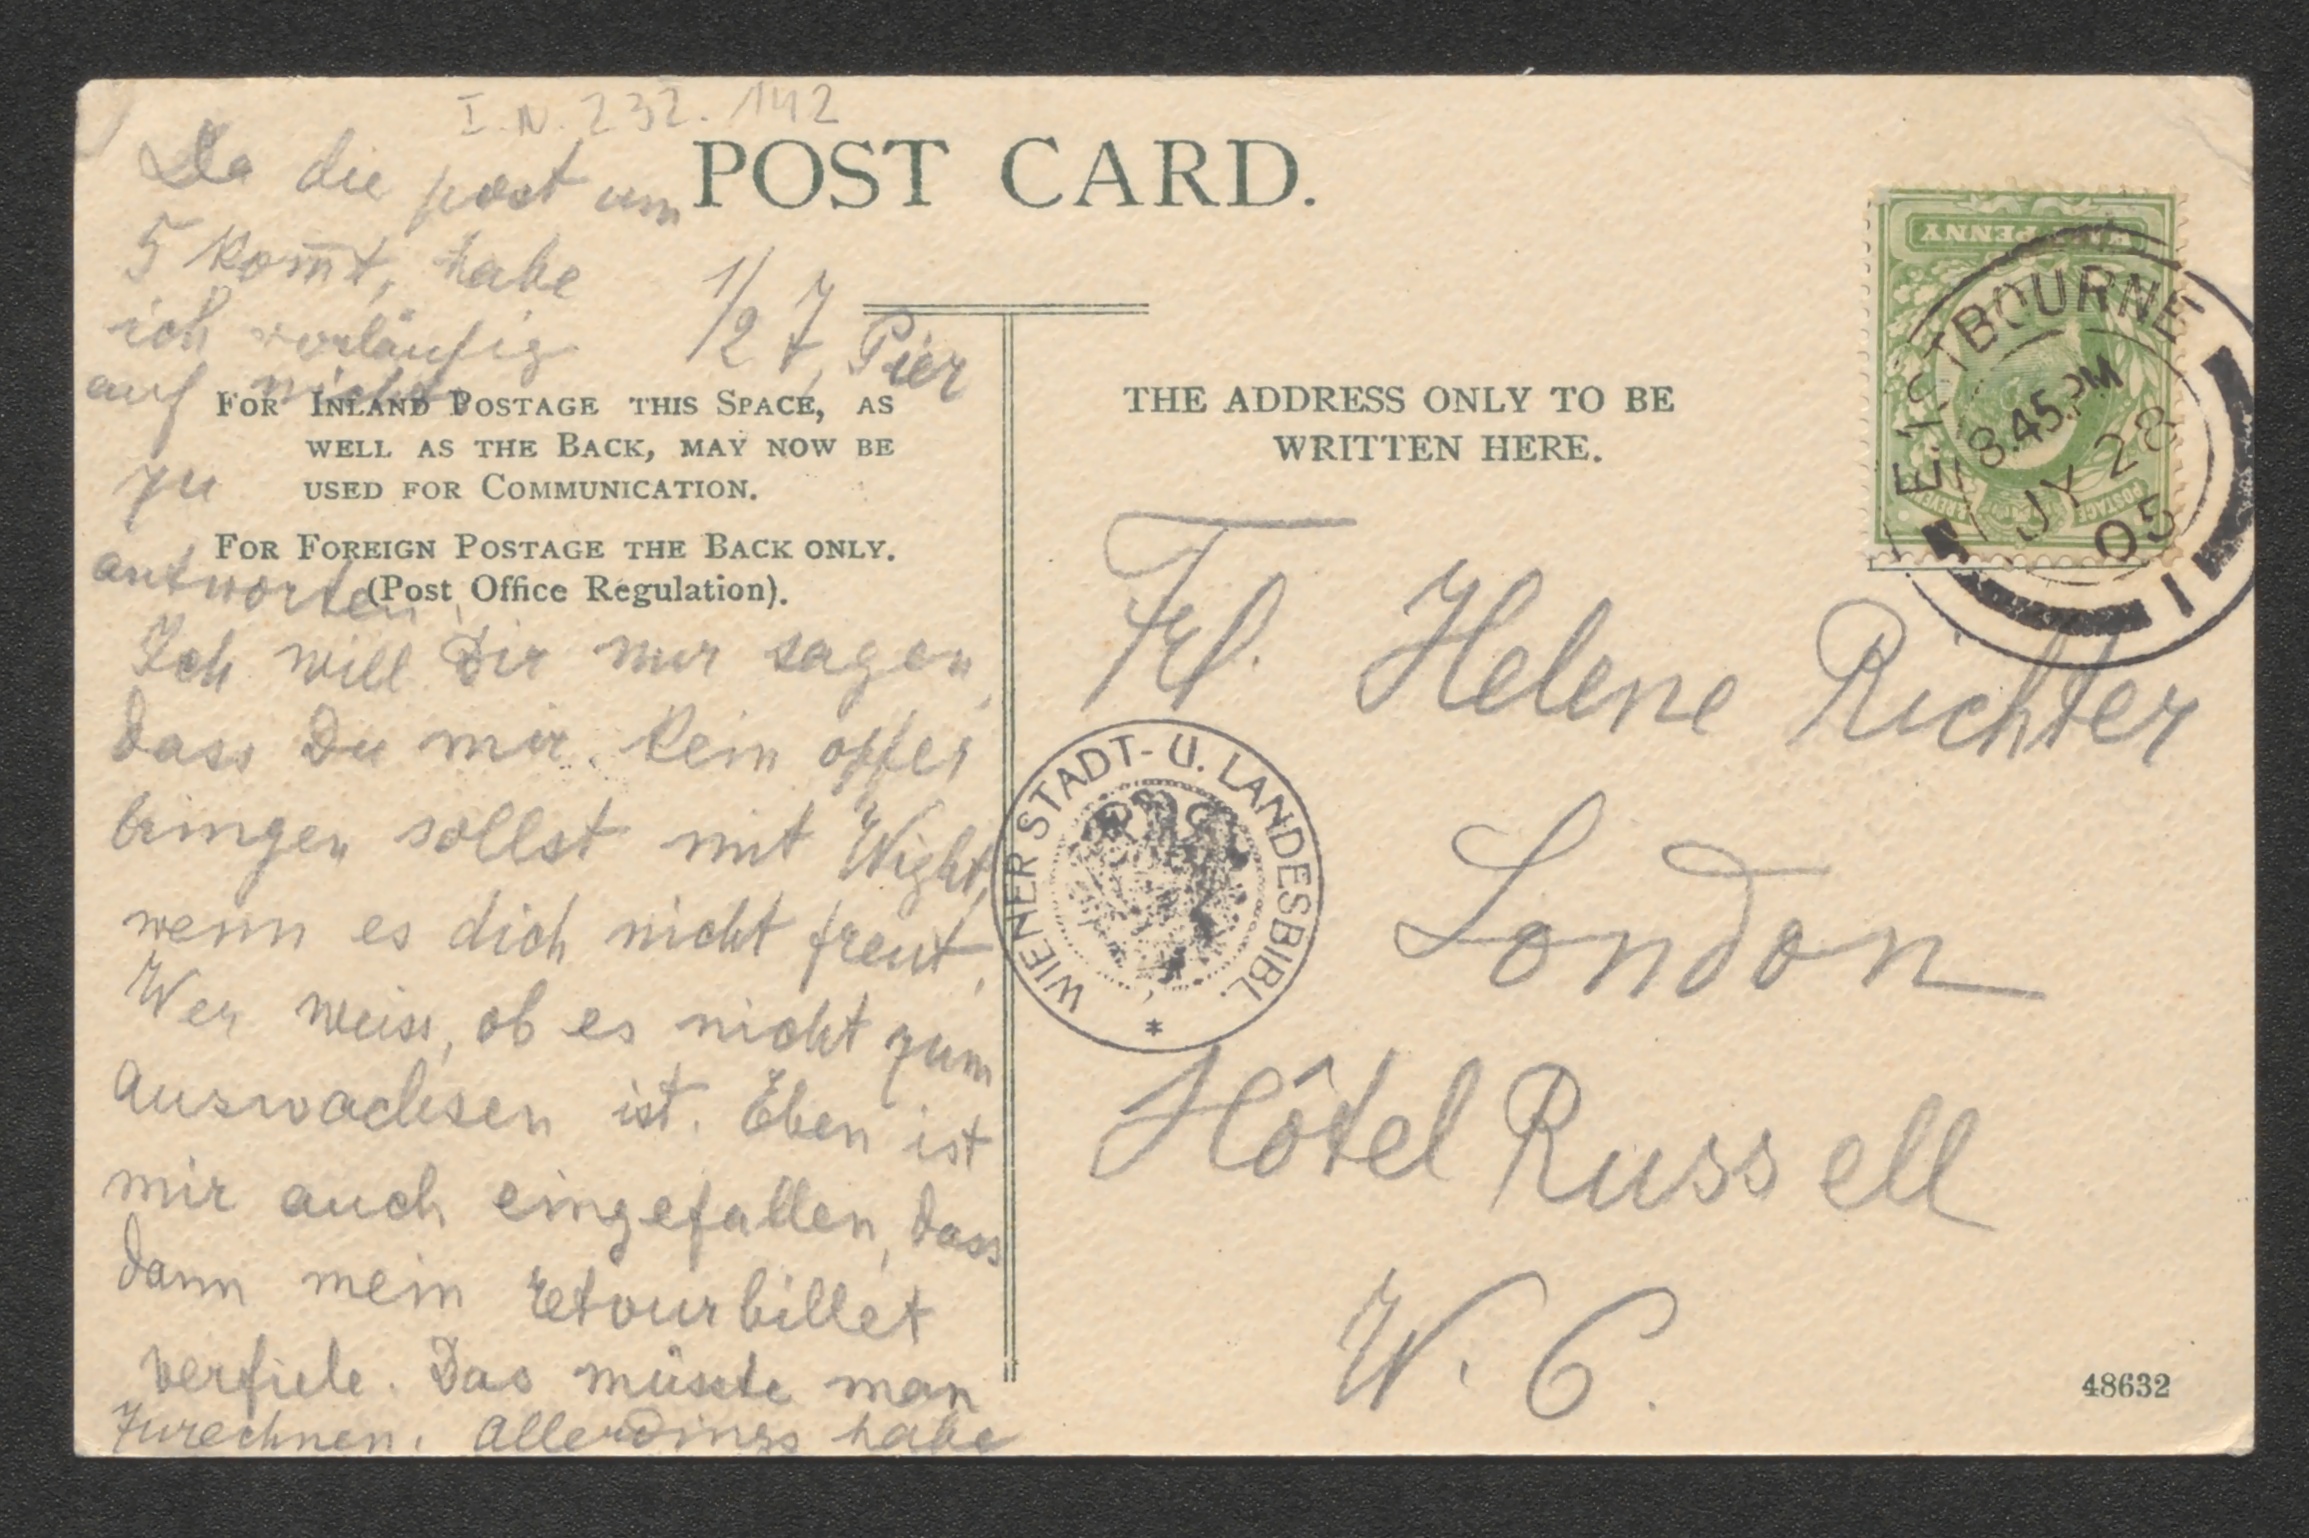 I.N. 232.142
POST CARD.
1/2 7, Pier
Da die post um
5 kom̅t, habe
ich vorläufig
auf nichts
zu
antworten.
Ich will Dir nur sagen,
dass Du mir kein opfer
bringen sollst mit Wight,
wenn es dich nicht freut.
Wer weiss, ob es nicht zum
auswachsen ist. Eben ist
mir auch eingefallen, dass
dann mein retourbillet
verfiele. Das müsste man
zurechnen. Allerdings habe
FOR INLAND POSTAGE THIS SPACE, AS
WELL AS THE BACK, MAY NOW BE
USED FOR COMMUNICATION.
FOR FOREIGN POSTAGE THE BACK ONLY.
(Post Office Regulation).
THE ADDRESS ONLY TO BE
WRITTEN HERE.
Frl. Helene Richter
London
Hôtel Russell
W. C.
HALFPENNY
POSTAGE
EASTBOURNE
8.45.PM
JY 28
05
1
WIENER STADT- U. LANDESBIBL.
48632